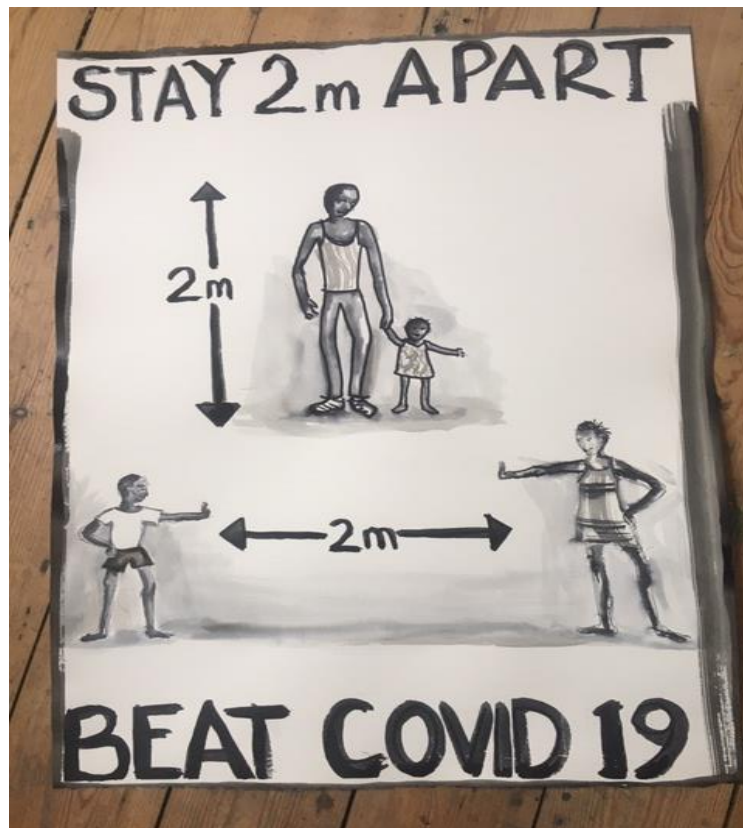 STAY 2m APART
2m
2m
BEAT COVID 19